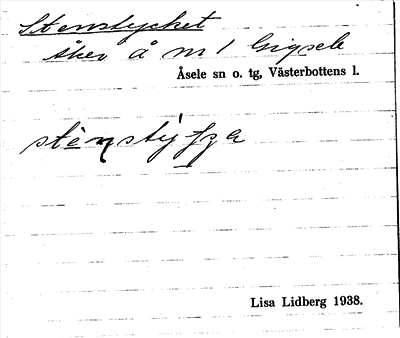 Stenstycket
åker å nr 1 Gigsele
Åsele sn o. tg, Västerbottens l.
Lisa Lidberg 1938.